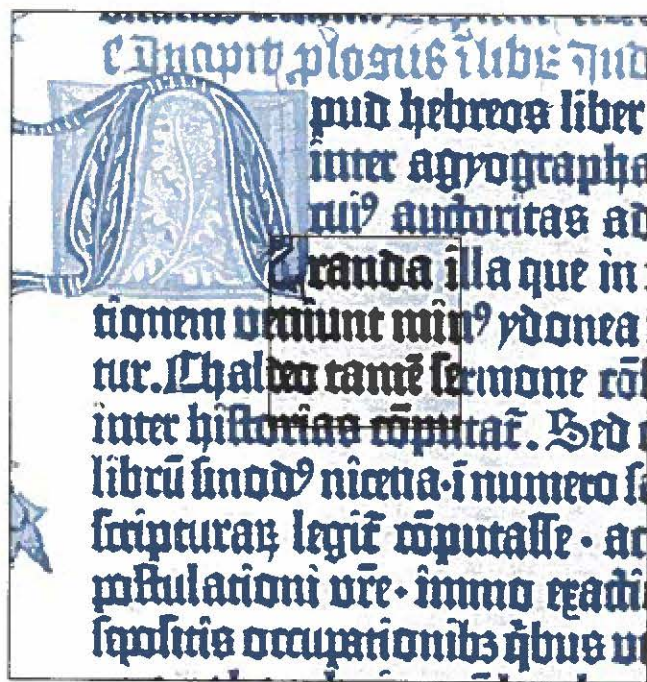 Incipit plogus ī libr̄ Jud
Apud hebreos liber
inter agyographa
cuiꝰ auctoritas ad
randa illa que in
tionem veniunt minꝰ ydonea
tur. Chaldeo tamē sermone cō
inter historias cōputat̄. Sed
librū sinodꝰ nicena·ī numero sa
scripturaꝝ legit̄ cōputasse · ac
postulationi vr̄e· immo exacti
sepositis occupationibꝫ q̄bus ve